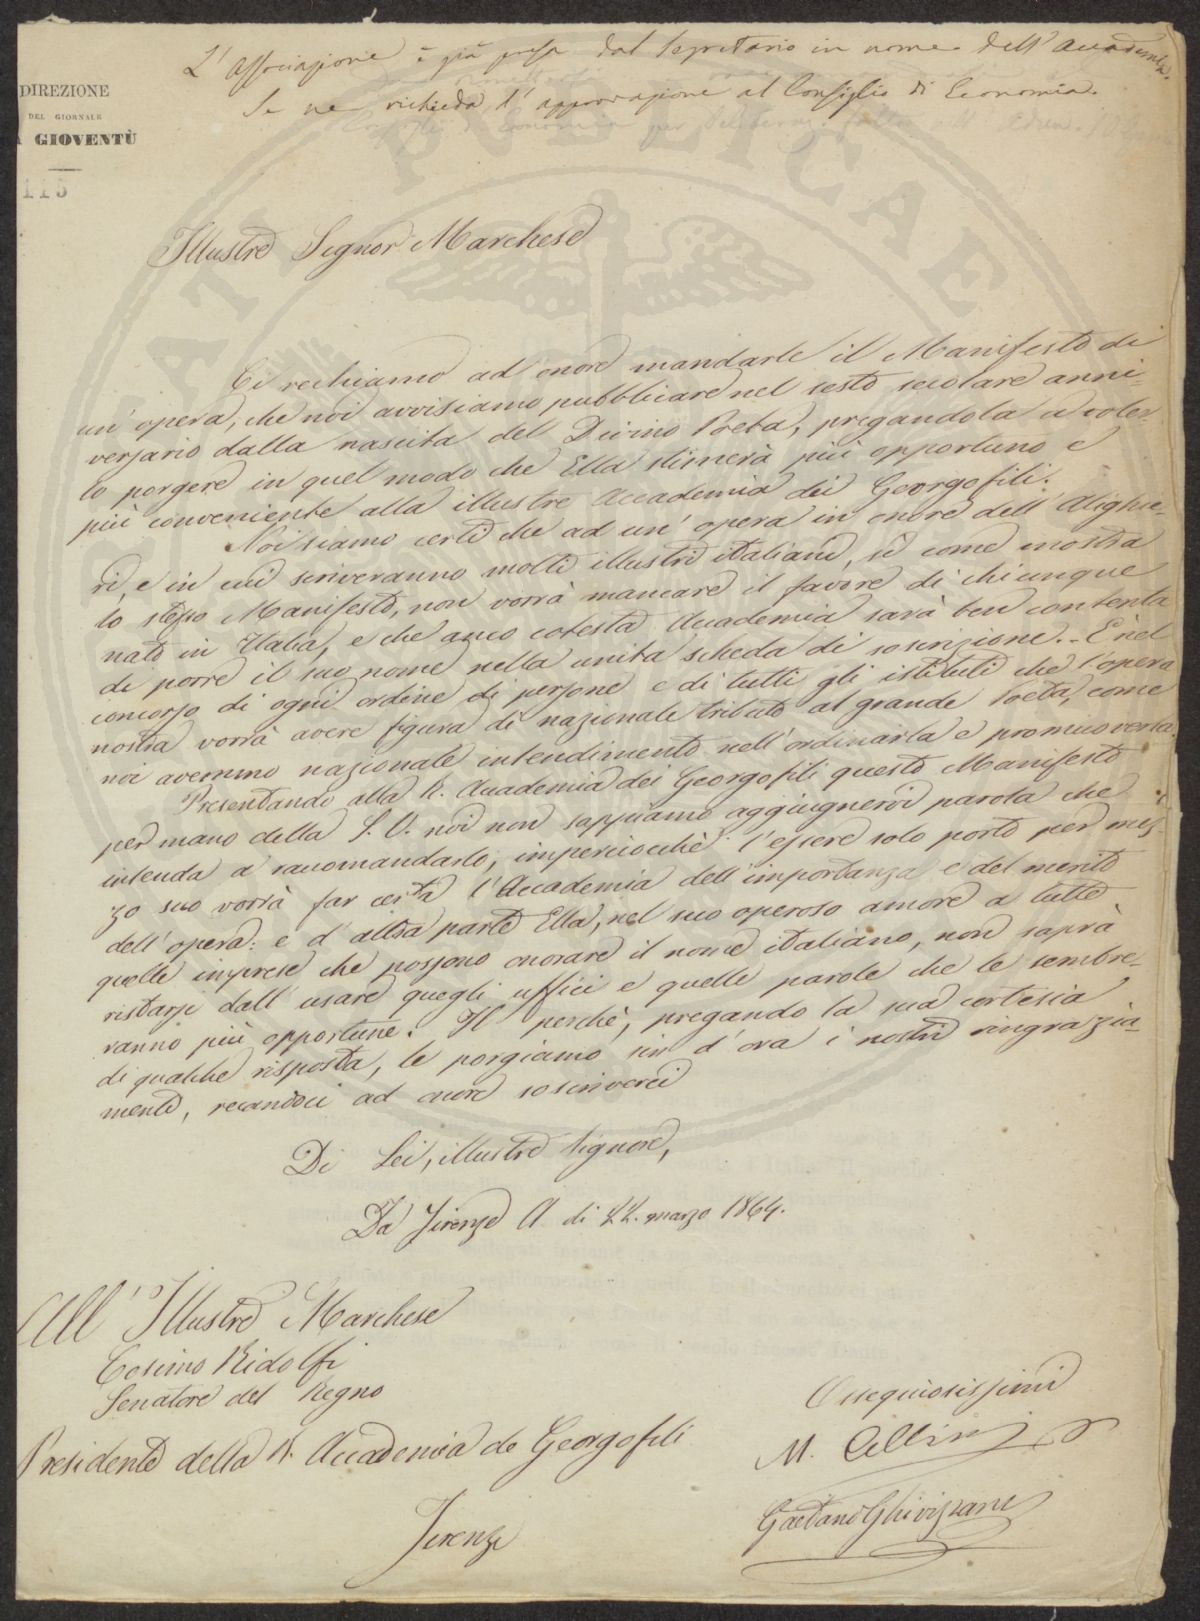 L'associazione è già presa dal Segretario in nome dell'Accademia.
Se ne richieda l'approvazione al Consiglio di Economia.
DIREZIONE
DEL GIORNALE
A GIOVENTÙ
115
PUBLICAE
Illustre Signor Marchese
Ci rechiamo ad onore mandarle il Manifesto di
un'opera, che noi avvisiamo pubblicare nel sesto secolare anni-
versario dalla nascita del Divino Poeta, pregandola a voler-
lo porgere in quel modo che Ella stimerà più opportuno e
più conveniente alla illustre Accademia dei Georgofili.
Noi siamo certi che ad un'opera in onore dell'Alighie-
ri, e in cui scriveranno molti illustri italiani, sì come mostra
lo stesso Manifesto, non vorrà mancare il favore di chiunque
nato in Italia, e che anco cotesta Accademia sarà ben contenta
di porre il suo nome nella unita scheda di soscrizione. - È nel
concorso di ogni ordine di persone e di tutti gli istituti che l'opera
nostra vorrà avere figura di nazionale tributo al grande Poeta, come
noi avemmo nazionale intendimento nell'ordinarla e promuoverla.
Presentando alla R. Accademia dei Georgofili questo Manifesto
per mano della S. V. noi non sappiamo aggiugnervi parola che
intenda a raccomandarlo; imperciocchè l'essere solo porto per mez-
zo suo vorrà far certa l'Accademia dell'importanza e del merito
dell'opera: e d'altra parte Ella, nel suo operoso amore a tutte
quelle imprese che possono onorare il nome italiano, non saprà
ristarsi dall'usare quegli uffici e quelle parole che le sembre-
ranno più opportune. Il perchè, pregando la sua cortesia
di qualche risposta, le porgiamo sin d'ora i nostri ringrazia-
menti, recandoci ad onore soscriverci
Di Lei, illustre Signore,
Da Firenze A. di 22. marzo 1864.
All'Illustre Marchese
Cosimo Ridolfi
Senatore del Regno
Presidente della R. Accademia de Georgofili
Firenze
Ossequiosissimi
M. Cellini
Gaetano Ghivizzani